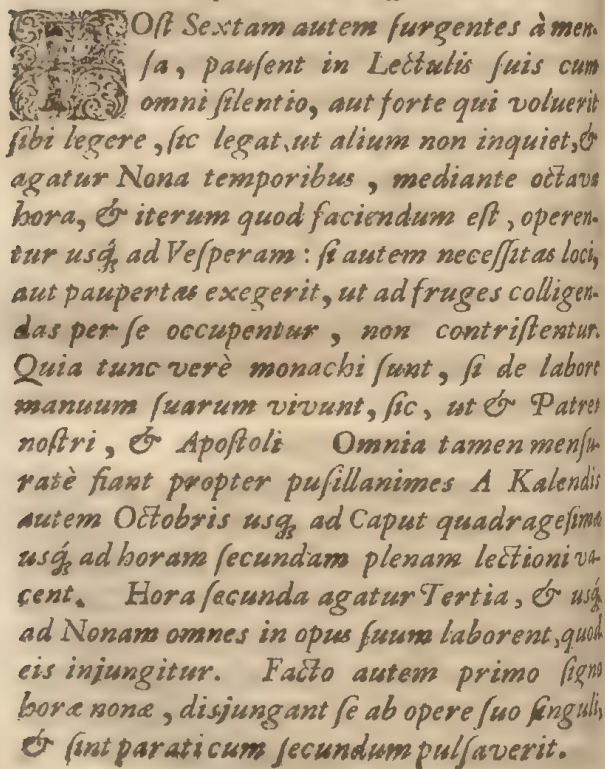 POſt Sextam autem ſurgentes à men-
ſa, pauſent in Lectulis ſuis cum
omni ſilentio, aut forte qui voluerit
ſibi legere, ſic legat, ut alium non inquiet, &
agatur Nona temporibus, mediante octava
hora, & iterum quod faciendum eſt, operen-
tur uſq́; ad Veſperam: ſi autem neceſſitas loci,
aut paupertas exegerit, ut ad fruges colligen-
das per ſe occupentur, non contriſtentur.
Quia tunc verè monachi ſunt, ſi de labore
manuum ſuarum vivunt, ſic, ut & Patres
noſtri, & Apoſtoli Omnia tamen menſu-
ratè fiant propter puſillanimes A Kalendis
autem Octobris uſq́; ad Caput quadrageſimæ
uſq́; ad horam ſecundam plenam lectioni va-
cent. Hora ſecunda agatur Tertia, & uſq́;
ad Nonam omnes in opus ſuum laborent, quod
eis injungitur. Facto autem primo ſigno
horæ nonæ, disjungant ſe ab opere ſuo ſinguli,
& ſint parati cum ſecundum pulſaverit.